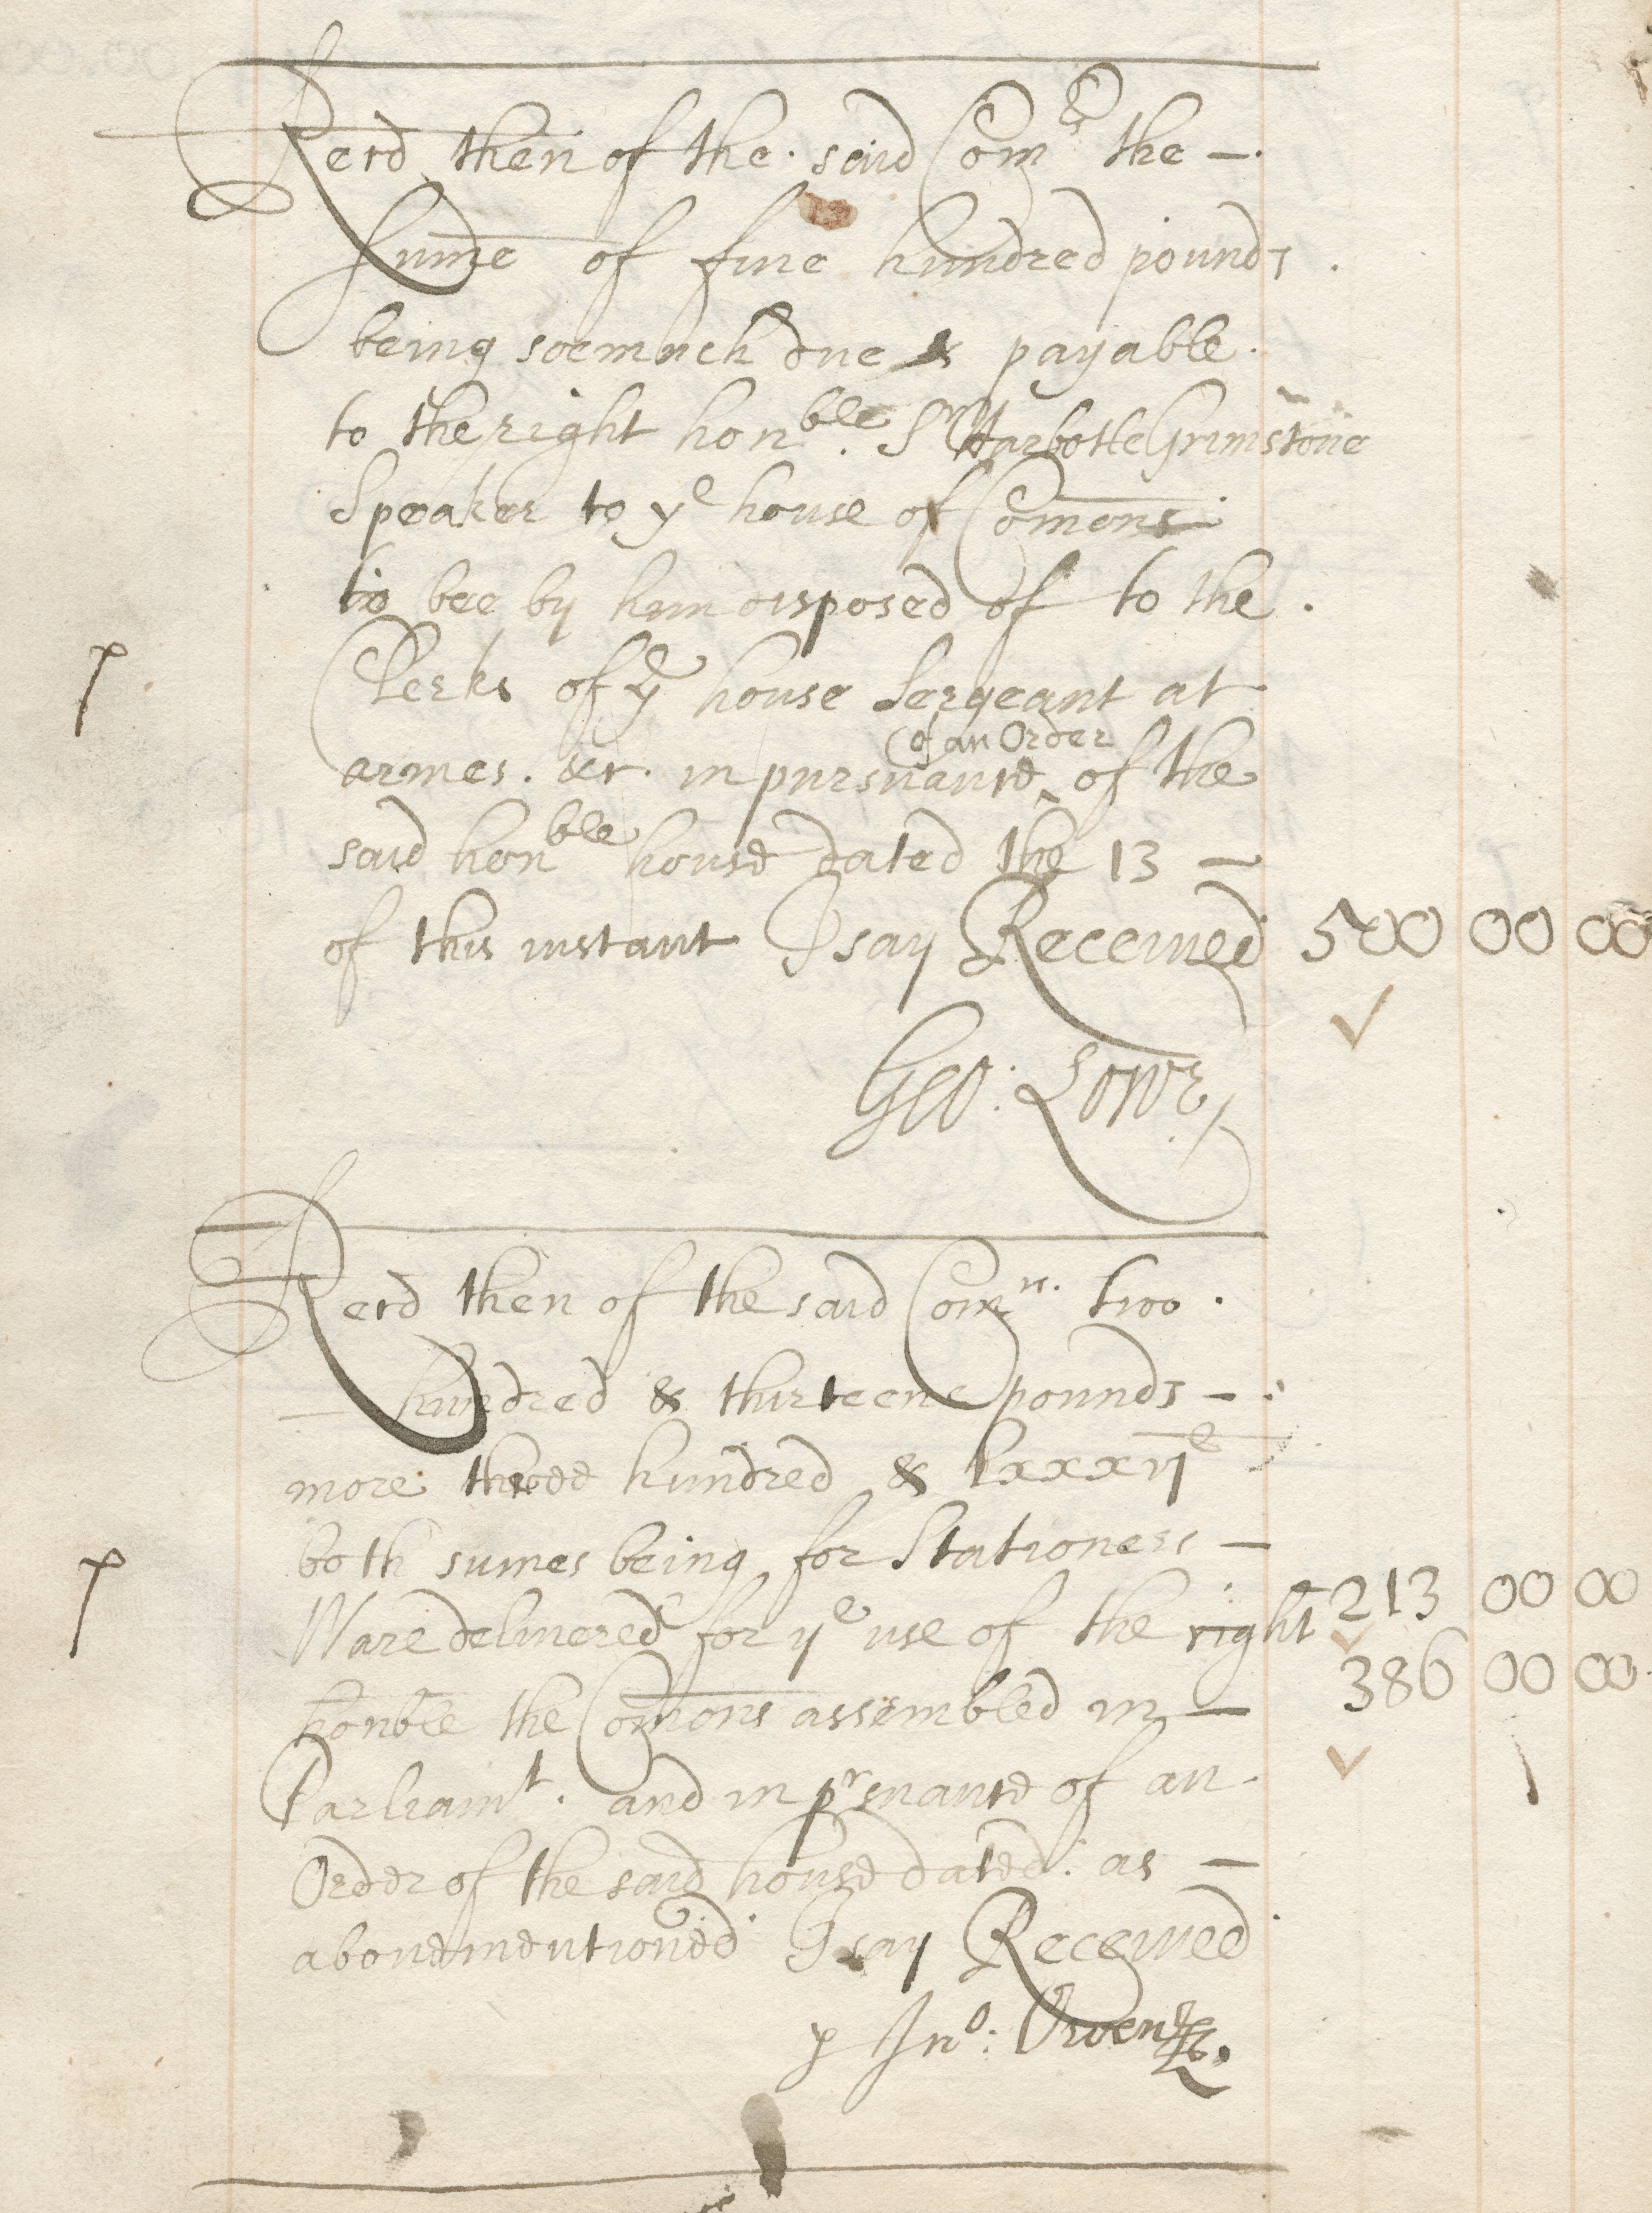 Recd then of the said Comrs the —.
Sume of five hundred pounds .
being soemuch due & payable.
to the right honble. Sr Harbotle Grimstone
Speaker to ye house of Comons.
to bee by him disposed of to the .
p
Clerks of ye house Sergeant at
of an Order
armes. &c. in pursuance ^ of the
said honble house dated the 13 —
of this instant I say Received 500 00 00
Geo: Lowe
Recd then of the said Comrs. two .
— hundred & thirteene pounds — .
more three hundred & lxxxvje —
both sumes being for Stationers —
p
Ware delivered for ye use of the right 213 00 00
honble the Comons assembled in — 386 00 00
Parliamt. and in prsuance of an
Order of the said house dated. as —
abovementioned I say Received
p Jno: Owen